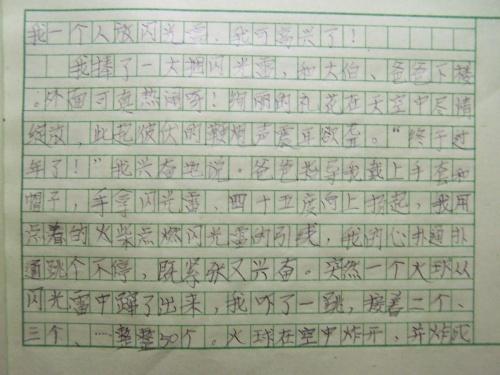 我一个人放闪光雷,我可高兴了!
我捧了一大捆闪光雷,和大伯、爸爸下楼
。外面可真热闹呀!绚丽的礼花在天空中尽情
绽放,此起彼伏的鞭炮声震耳欲聋。“终于过
年了!”我兴奋地说。爸爸指导我戴上手套和
帽子,手拿闪光雷,四十五度向上扬起,我用
点着的火柴点燃闪光雷的引线,我的心扑通扑
通跳个不停,既紧张又兴奋。突然一个火球从
闪光雷中蹿了出来,我吓了一跳,接着二个、
三个、……整整50个。火球在空中炸开,并炸成